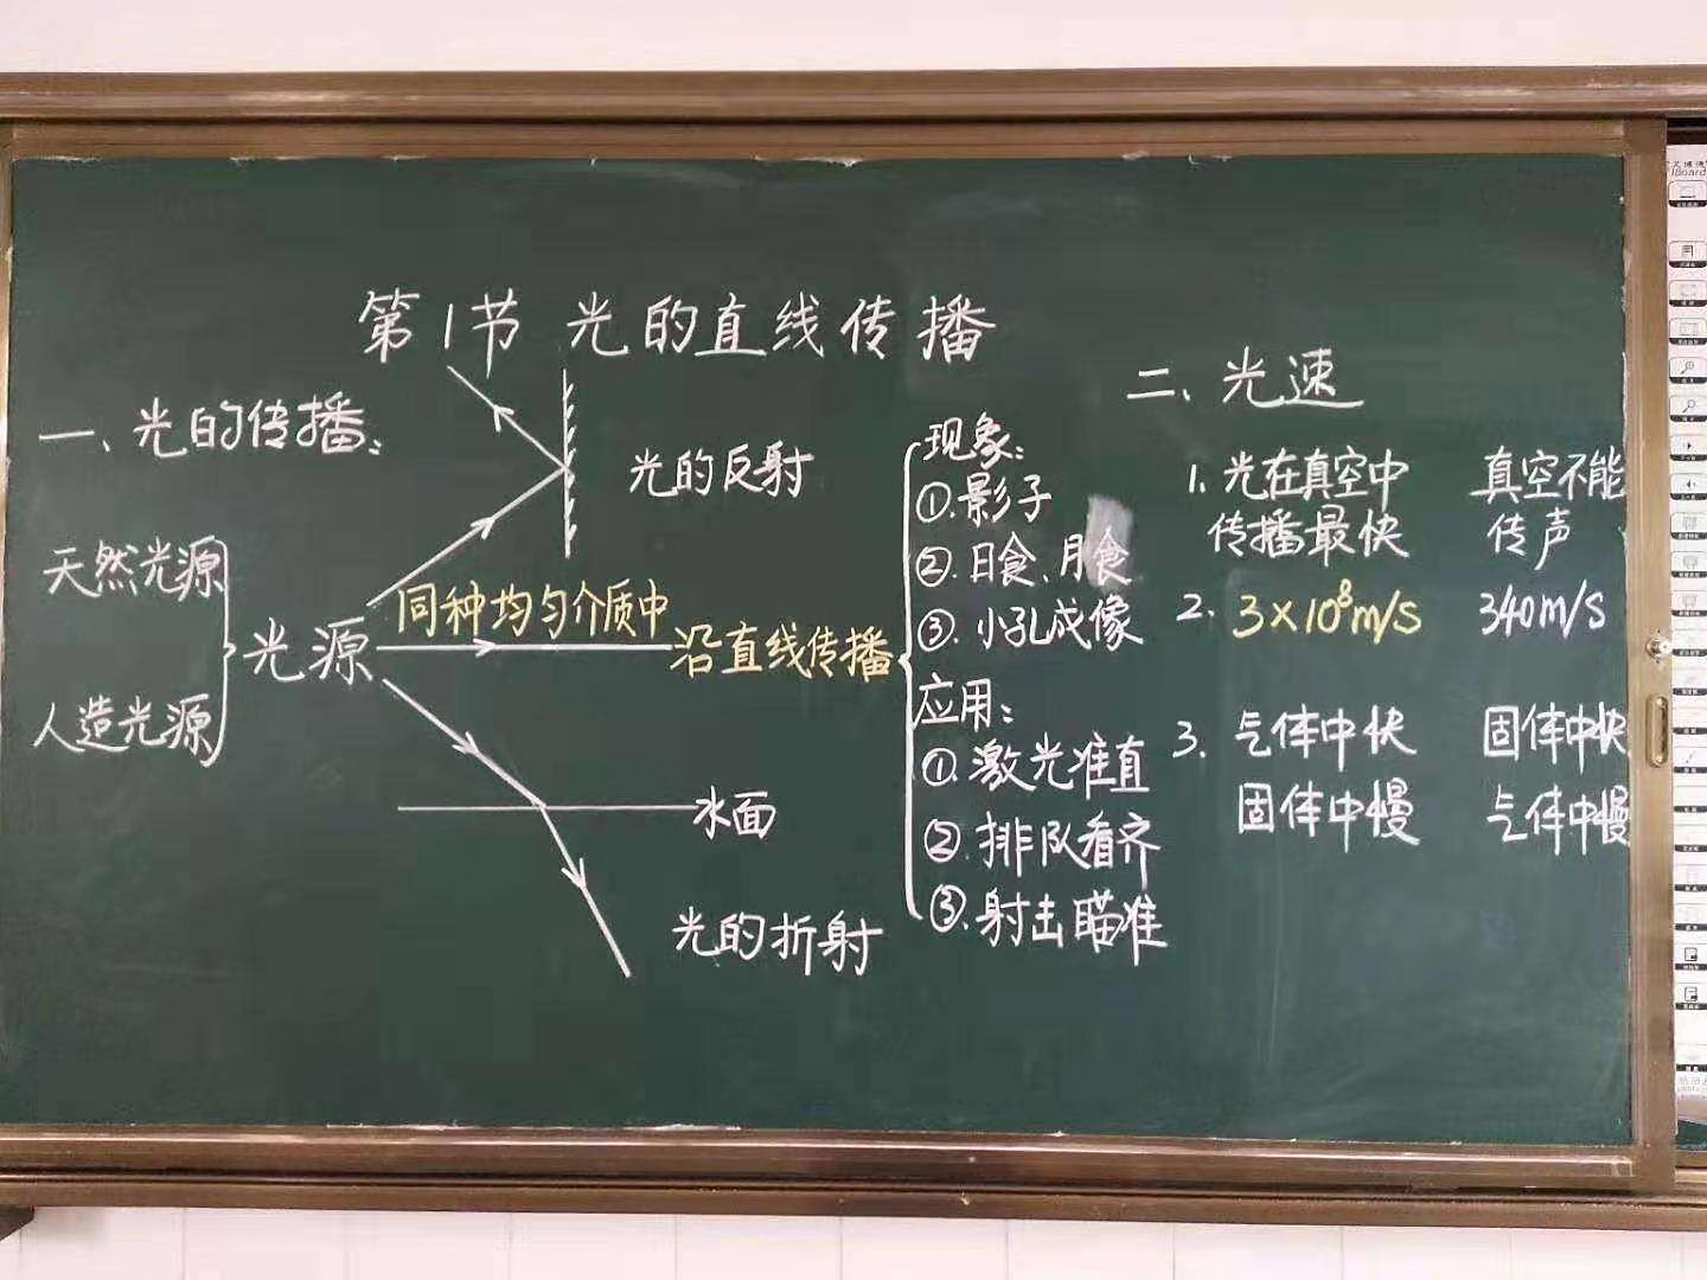 第1节 光的直线传播
一、光的传播:
天然光源
人造光源
光源
光的反射
同种均匀介质中
沿直线传播
水面
光的折射
现象:
①.影子
②.日食、月食
③.小孔成像
应用:
①.激光准直
②.排队看齐
③.射击瞄准
二、光速
1.光在真空中 真空不能
传播最快 传声
2. 3×10⁸m/s 340m/s
3. 气体中快 固体中快
固体中慢 气体中慢
iBoard